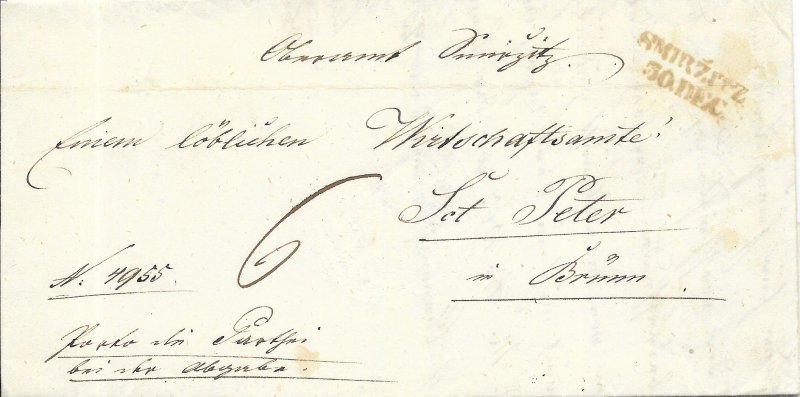 Oberamt Smirzitz.
SMIRŽITZ
30. DEC.
Einem löblichen Wirtschaftsamte
Sct Peter
6
in Brünn
N: 4955.
Porto die Parthei
bei der Abgabe.